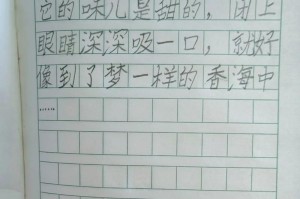 它的味儿是甜的，闭上
眼睛深深吸一口，就好
像到了梦一样的香海中
……